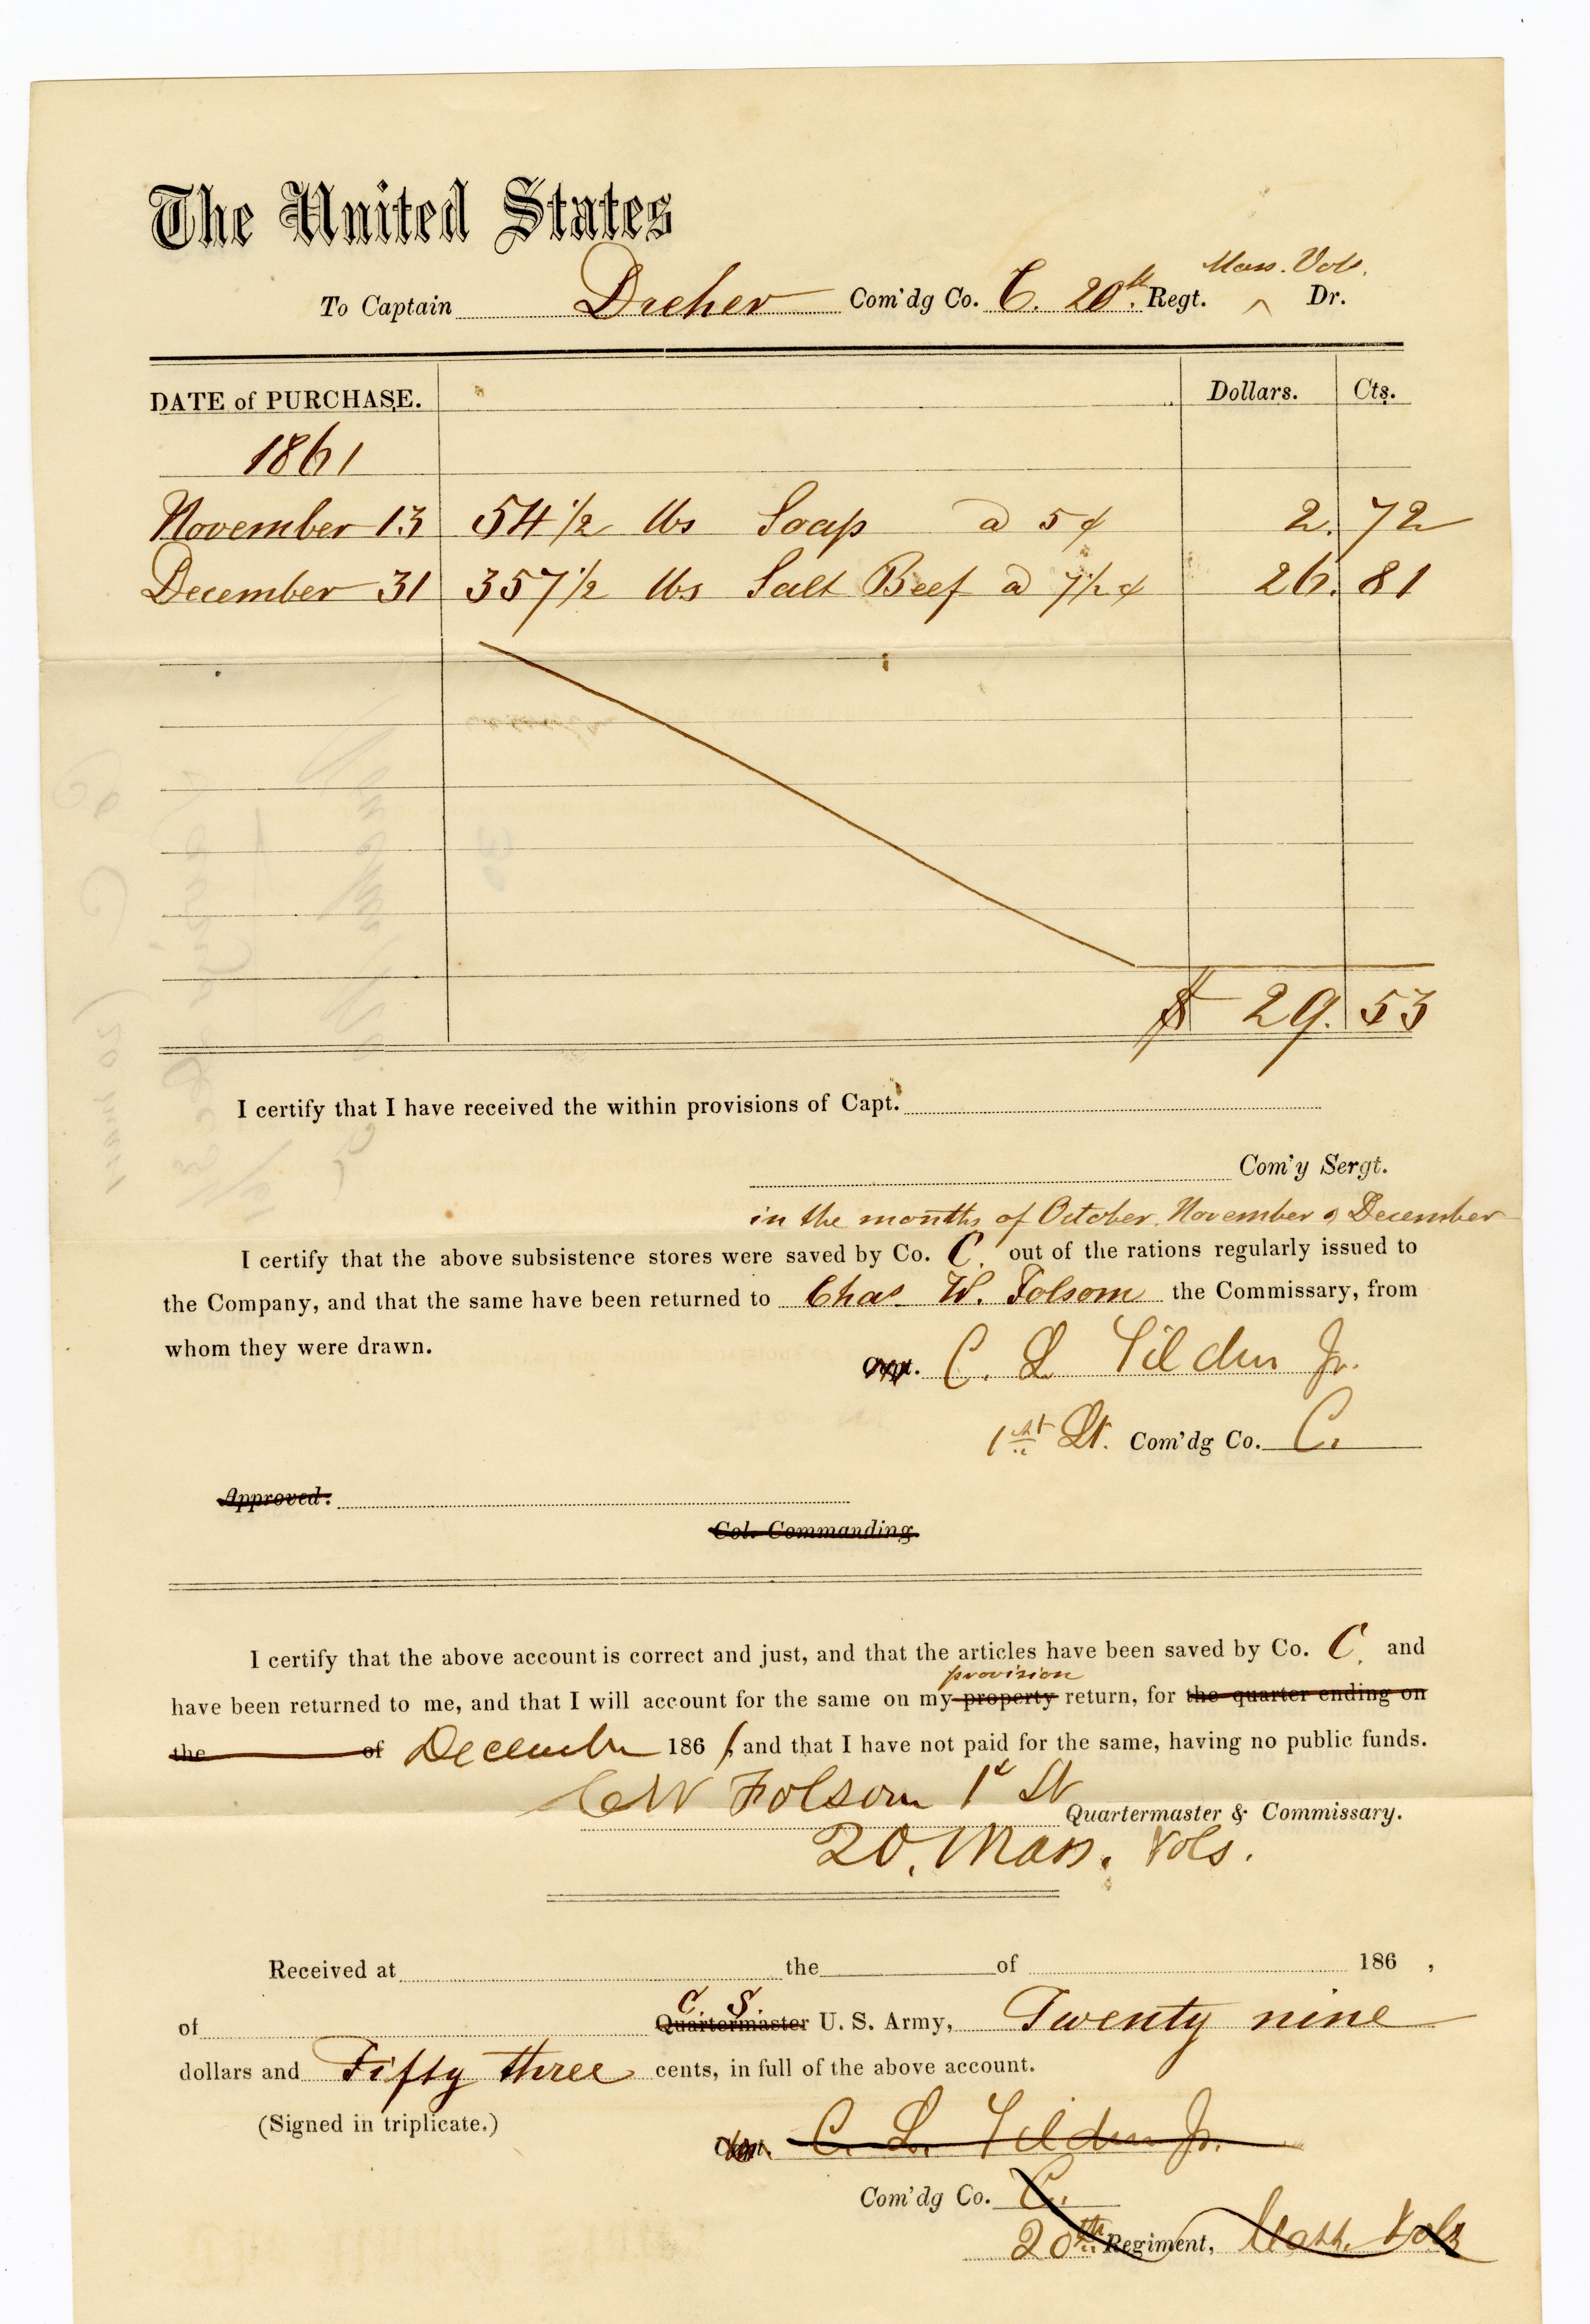 The United States
Mass. Vols.
To Captain Dreher Com'dg Co. C. 20th Regt. ^ Dr.
DATE of PURCHASE. Dollars. Cts.
1861
November 13 54 1/2 lbs Soap a 5 ¢ 2. 72
December 31 357 1/2 lbs Salt Beef a 7 1/2 ¢ 26. 81
$ 29. 53
I certify that I have received the within provisions of Capt.
Com'y Sergt.
in the months of October, November & December
I certify that the above subsistence stores were saved by Co. C. out of the rations regularly issued to
the Company, and that the same have been returned to Chas. W. Folsom the Commissary, from
whom they were drawn.
C. L. Tilden Jr.
1st Lt. Com'dg Co. C.
Approved.
Col. Commanding.
I certify that the above account is correct and just, and that the articles have been saved by Co. C. and
provision
have been returned to me, and that I will account for the same on my property return, for the quarter ending on
the of December 1861, and that I have not paid for the same, having no public funds.
C W Folsom 1st Lt
Quartermaster & Commissary.
20. Mass. Vols.
Received at the of 186 ,
C. S.
of Quartermaster U. S. Army, Twenty nine
dollars and Fifty three cents, in full of the above account.
(Signed in triplicate.)
C. L. Tilden Jr.
Com'dg Co. C.
20th Regiment, Mass. Vols